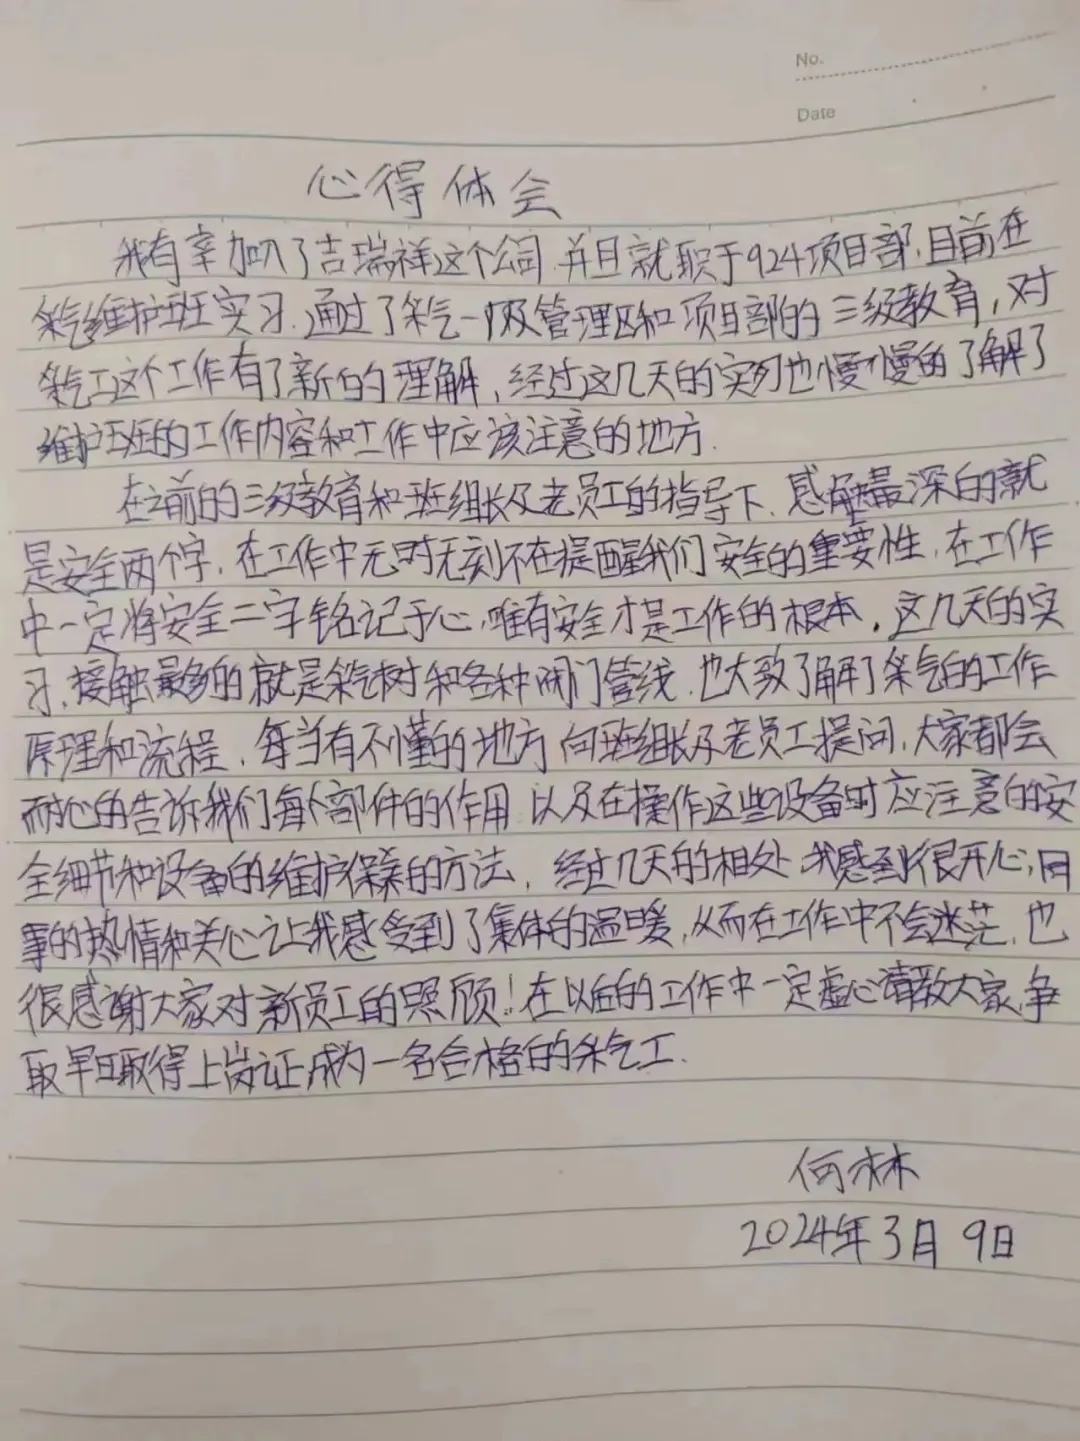 No.
Date
心得体会
我有幸加入了吉瑞祥这个公司,并且就职于924项目部,目前在
采气维护班实习.通过了采气一级管理区和项目部的三级教育,对
采气工这个工作有了新的理解,经过这几天的实习也慢慢的了解了
维护班的工作内容和工作中应该注意的地方.
在之前的三级教育和班组长及老员工的指导下.感触最深的就
是安全两个字,在工作中无时无刻不在提醒我们安全的重要性,在工作
中一定将安全二字铭记于心,唯有安全才是工作的根本,这几天的实
习,接触最多的就是采气树和各种阀门管线,也大致了解了采气的工作
原理和流程,每当有不懂的地方向班组长及老员工提问,大家都会
耐心的告诉我们每个部件的作用以及在操作这些设备时应注意的安
全细节和设备的维护保养的方法,经过几天的相处我感到很开心,同
事的热情和关心让我感受到了集体的温暖,从而在工作中不会迷茫,也
很感谢大家对新员工的照顾!在以后的工作中一定虚心请教大家,争
取早日取得上岗证成为一名合格的采气工.
何林
2024年3月9日